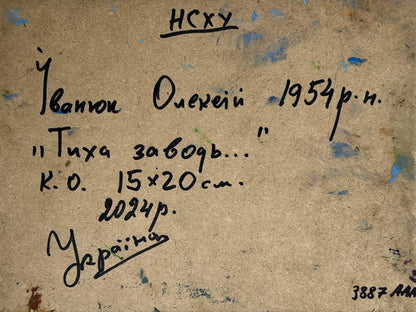 НСХУ
Іванюк Олексій 1954 р.н.
"Тиха заводь..."
К.О. 15×20 см.
2024р.
Україна
3887 ААА